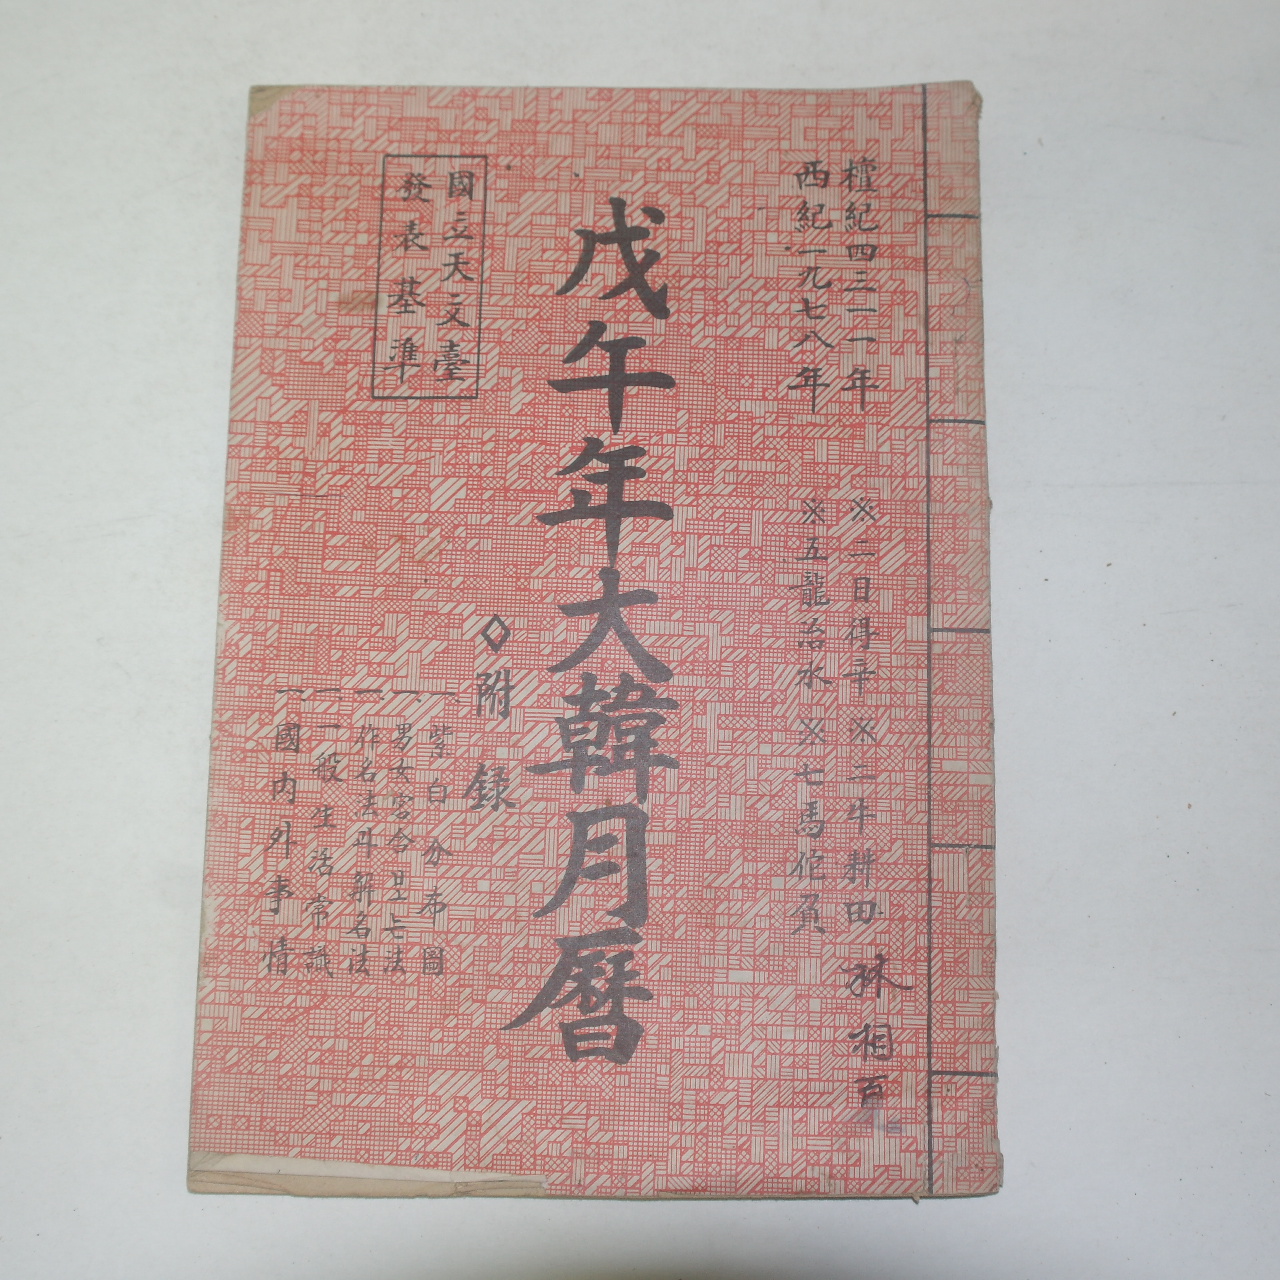 檀紀四三一一年
西紀一九七八年
※二日得辛 ※二牛耕田
※五龍治水 ※七馬佗負
林相百
戊午年大韓月曆
國立天文臺
發表基準
◇附録
一、紫白分布圖
一、男女宮合묘는法
一、作名法과解名法
一、一般生活常識
一、國內外事情